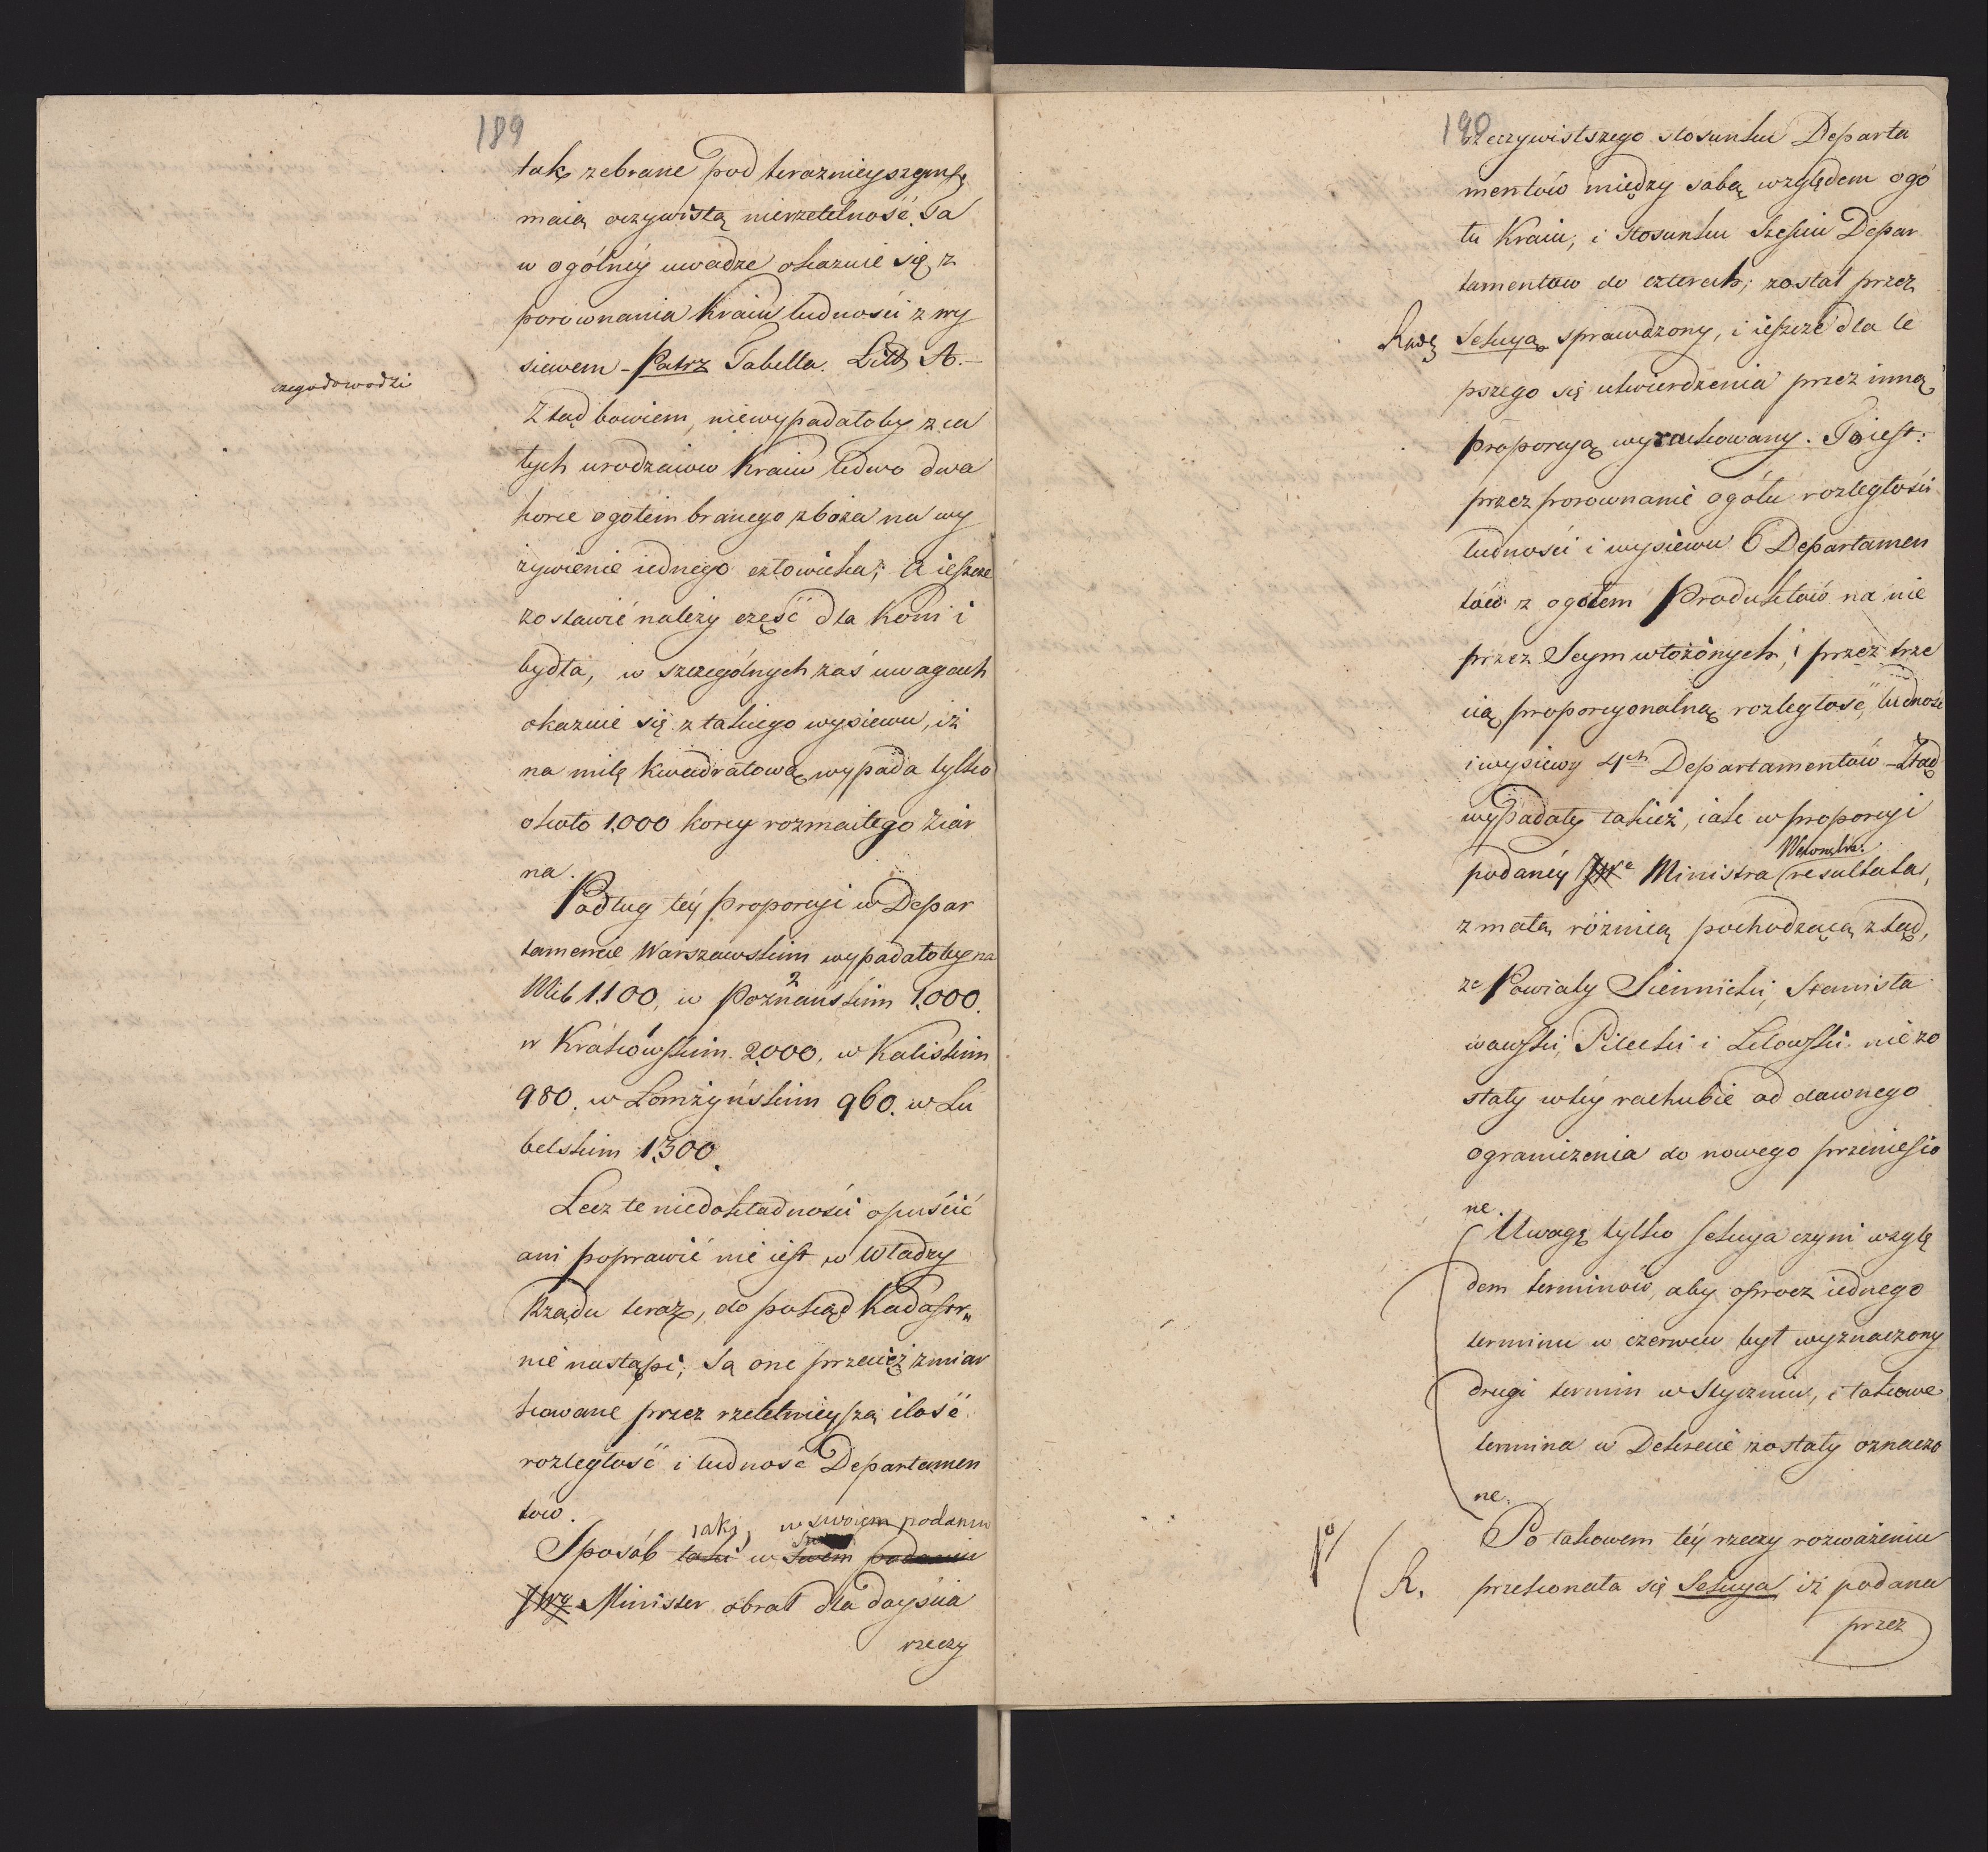 189
tak zebrane pod teraznieyszym
maią oczywistą nierzetelność. Ta
w ogólnéy uwadze okazuie się z
porównania Kraiu ludności z wy
siewem - Patrz Tabella. Litt A. -
czego dowodzi
Ztąd bowiem, niewypadałoby z ca
łych urodzaiow Kraiu ledwo dwa
korce ogółem branego zboża na wy
żywienie iednego człowieka; a ieszcze
zostawić należy część dla koni i
bydła, w szczególnych zaś uwagach
okazuie się z takiego wysiewu, iż
na milę kwadratową wypada tylko
około 1.000 korcy rozmaitego ziar
na.
Podług téy proporcyi w Depar
tamencie Warszawskim wypadałoby na
Milę 1.100, w Poznańskim 1.000.
2
w Krakowskim 2.000, w Kaliskim
980. w Łomżyńskim 960. w Lu
belskim 1.300.
Lecz te niedokładności opuścić
ani poprawić nie iest w Władzy
Rządu teraz, do pokąd Kadastr
nie nastąpi; Są one przecież zmiar
kowane przez rzetelnieyszą ilość
rozległość i ludność Departamen
tów.
iaki, w swoiem podaniu
Sposób taki w swem podaniu
JW Minister obrał dla doyścia
rzeczy
190
rzeczywistszego stosunku Departa
mentów między sobą względem ogó
łu Kraiu; i stosunku Sześciu Depar
tamentow do czterech; został przez
Radę Sekcyą sprawdzony, i ieszcze dla le
pszego się utwierdzenia przez inną
proporcyą wyrachowany. To iest:
przez porownanie ogółu rozległości
ludności i wysiewu 6 Departamen
tów z ogółem Produktów na nie
przez Seym włożonych, i przez trze
cią proporcyonalną rozległość, ludność
i wysiewy 4ch Departamentów - Ztąd
wypadały takież, iak w proporcyi
Wewnętrz.
podanéy JW Ministra resultata,
z małą różnicą pochodzącą ztąd,
że Powiaty Siennicki, Stanisła
wowski, Pilecki i Lelowski nie zo
stały w téy rachubie od dawnego
ograniczenia do nowego przeniesio
ne.
Uwagę tylko Sekcya czyni wzglę
dem terminów, aby oprocz iednego
terminu w czerwcu był wyznaczony
drugi termin w Styczniu, i takowe
termina w Dekrecie zostały oznaczo
ne.
Po takowem téy rzeczy rozważeniu
R. przekonała się Sekcya iż podana
przez